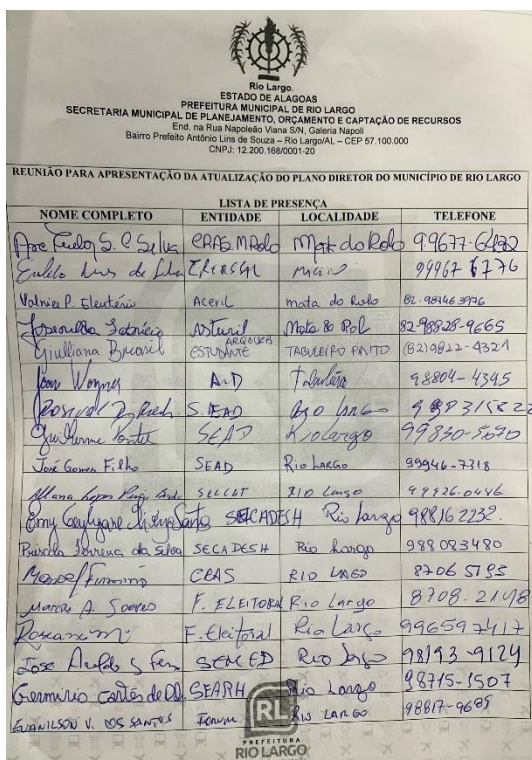 Rio Largo.
ESTADO DE ALAGOAS
PREFEITURA MUNICIPAL DE RIO LARGO
SECRETARIA MUNICIPAL DE PLANEJAMENTO, ORÇAMENTO E CAPTAÇÃO DE RECURSOS
End. na Rua Napoleão Viana S/N, Galeria Napoli
Bairro Prefeito Antônio Lins de Souza – Rio Largo/AL – CEP 57.100.000
CNPJ: 12.200.168/0001-20
REUNIÃO PARA APRESENTAÇÃO DA ATUALIZAÇÃO DO PLANO DIRETOR DO MUNICÍPIO DE RIO LARGO
LISTA DE PRESENÇA
NOME COMPLETO ENTIDADE LOCALIDADE TELEFONE
S. C. Silva CRAS M. Rolo Mata do Rolo 99677-6432
de 99967 6776
Valnier P. Eleutério Aceril mata do Rolo
Asturil Mata do 82-98828-9665
Giulliana Brasil ESTUDANTE ARQ TABULEIRO PINTO (82)9822-4321
Wagner 98804-4345
Largo
Guilherme SEAD Rio Largo 99830-5070
José Gomes Filho SEAD Rio LARGO 99946-7318
Lopes RIO Largo 99926-0446
SECADESH Rio Largo 988162232.
Priscila Ferreira da Silva SECADESH Rio Largo 988083480
CRAS RIO LARGO 8706 5193
Marcos A. Soares F. ELEITORAL Rio Largo 8708-2148
F. Eleitoral Rio Largo 996597417
Jose S. SEMCED Rio Largo 98193-9124
Germinio SEARH Rio Largo 98715-1507
EVANILSON V. DOS SANTOS Forum RIO LARGO 98817-9685
RL
PREFEITURA
RIO LARGO